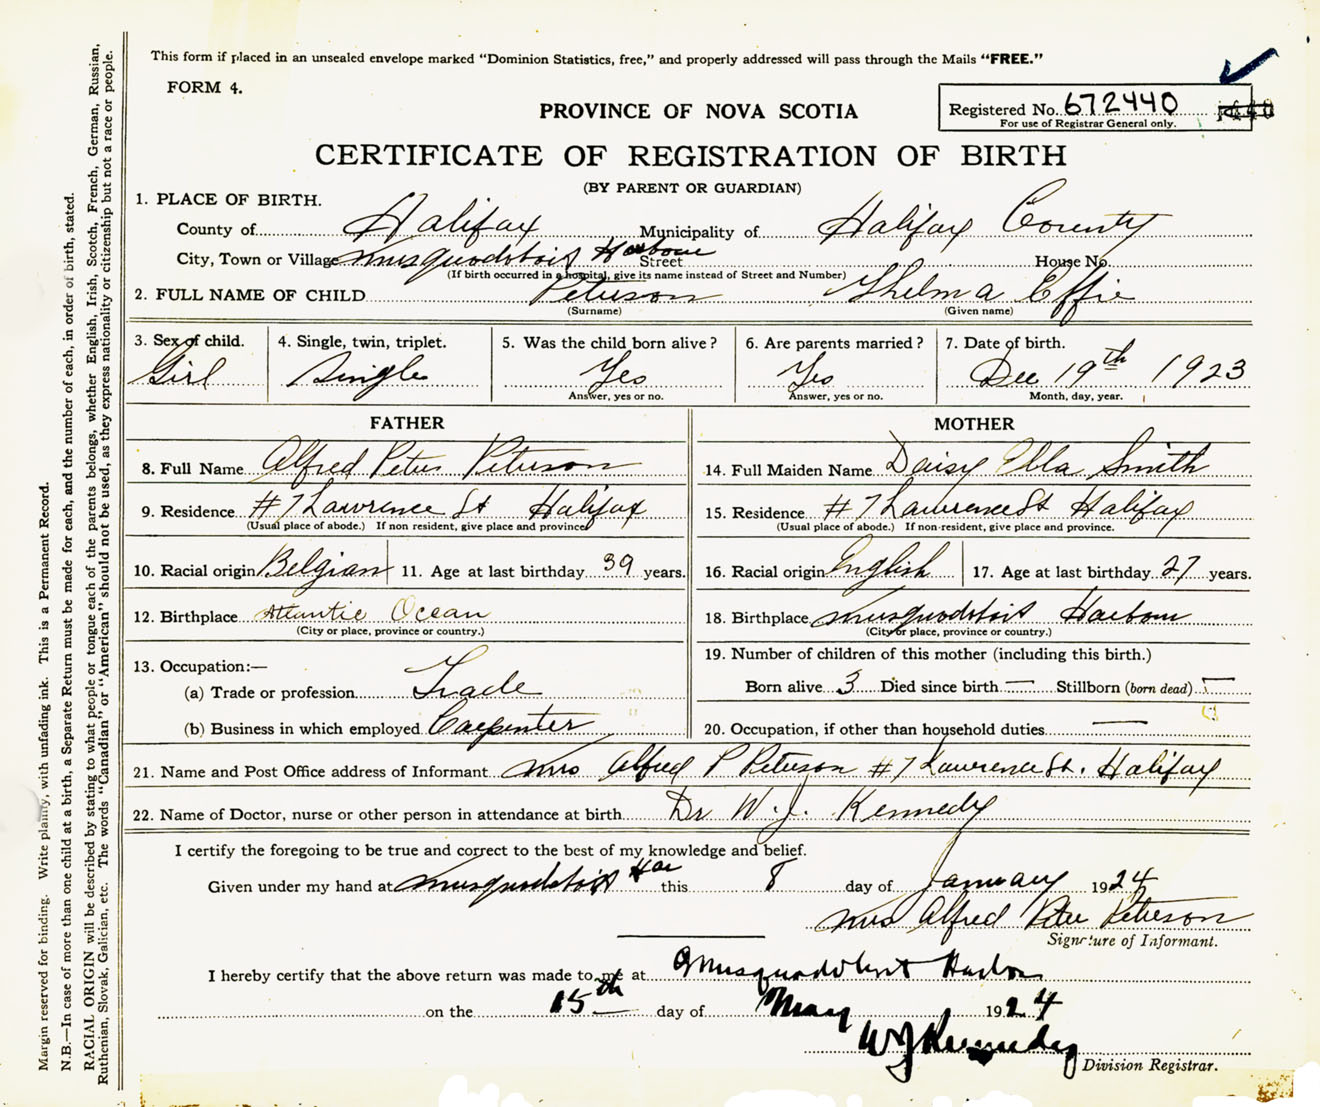 This form if placed in an unsealed envelope marked “Dominion Statistics, free,” and properly addressed will pass through the Mails “FREE.”
FORM 4.
Registered No. 672440
For use of Registrar General only.
PROVINCE OF NOVA SCOTIA
CERTIFICATE OF REGISTRATION OF BIRTH
(BY PARENT OR GUARDIAN)
1. PLACE OF BIRTH.
County of Halifax Municipality of Halifax County
City, Town or Village Musquodoboit Harbour Street House No.
(If birth occurred in a hospital, give its name instead of Street and Number)
2. FULL NAME OF CHILD Peterson Thelma Effie
(Surname) (Given name)
3. Sex of child. 4. Single, twin, triplet. 5. Was the child born alive? 6. Are parents married? 7. Date of birth.
Girl Single Yes Yes Dec 19th 1923
Answer, yes or no. Answer, yes or no. Month, day, year.
FATHER MOTHER
8. Full Name Alfred Peter Peterson 14. Full Maiden Name Daisy Ella Smith
9. Residence #7 Lawrence St Halifax 15. Residence #7 Lawrence St Halifax
(Usual place of abode.) If non resident, give place and province (Usual place of abode.) If non-resident, give place and province.
10. Racial origin Belgian 11. Age at last birthday 39 years. 16. Racial origin English 17. Age at last birthday 27 years.
12. Birthplace Atlantic Ocean 18. Birthplace Musquodoboit Harbour
(City or place, province or country.) (City or place, province or country.)
13. Occupation:— 19. Number of children of this mother (including this birth.)
(a) Trade or profession Trade Born alive 3 Died since birth — Stillborn (born dead) —
(b) Business in which employed Carpenter 20. Occupation, if other than household duties —
21. Name and Post Office address of Informant Mrs Alfred P Peterson #7 Lawrence St. Halifax
22. Name of Doctor, nurse or other person in attendance at birth Dr W. J. Kennedy
I certify the foregoing to be true and correct to the best of my knowledge and belief.
Given under my hand at Musquodoboit Har this 8 day of January 1924
Mrs Alfred Peter Peterson
Signature of Informant.
I hereby certify that the above return was made to me at Musquodoboit Harbor
on the 15th day of May 1924
W J Kennedy
Division Registrar.
Margin reserved for binding. Write plainly, with unfading ink. This is a Permanent Record.
N.B.—In case of more than one child at a birth, a Separate Return must be made for each, and the number of each, in order of birth, stated.
RACIAL ORIGIN will be described by stating to what people or tongue each of the parents belongs, whether English, Irish, Scotch, French, German, Russian,
Ruthenian, Slovak, Galician, etc. The words “Canadian” or “American” should not be used, as they express nationality or citizenship but not a race or people.